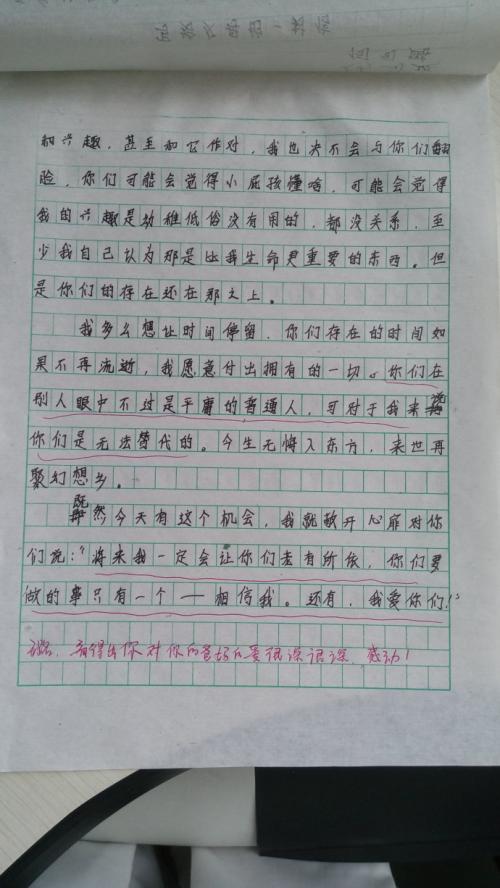 的兴趣，甚至和它作对，我也决不会与你们翻
脸，你们可能会觉得小屁孩懂啥，可能会觉得
我的兴趣是幼稚低俗没有用的，都没关系，至
少我自己认为那是比我生命更重要的东西。但
是你们的存在还在那之上。
我多么想让时间停留，你们存在的时间如
果不再流逝，我愿意付出拥有的一切。你们在
别人眼中不过是平庸的普通人，可对于我来说
你们是无法替代的。今生无悔入东方，来世再
聚幻想乡。
既然今天有这个机会，我就敞开心扉对你
们说：“将来我一定会让你们老有所依，你们要
做的事只有一个——相信我。还有，我爱你们！”
看得出你对你的爸妈的爱很深很深，感动！